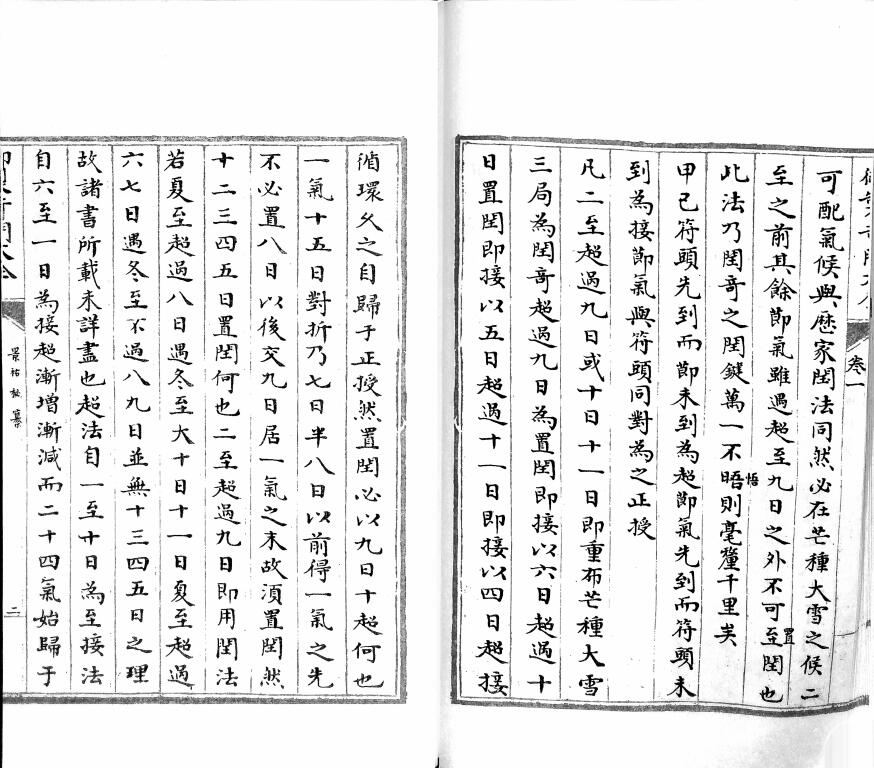 卷一
可配氣候與歷家閏法同然必在芒種大雪之候二
至之前其餘節氣雖遇超至九日之外不可至閏也
置
此法乃閏竒之閏鍵萬一不晤則毫釐千里矣
悟
甲己符頭先到而節未到為超節氣先到而符頭未
到為接節氣與符頭同對為之正授
凡二至超過九日或十日十一日即重布芒種大雪
三局為閏竒超過九日為置閏即接以六日超過十
日置閏即接以五日超過十一日即接以四日超接
循環久之自歸于正授然置閏必以九日十超何也
一氣十五日對折乃七日半八日以前得一氣之先
不必置八日以後交九日居一氣之末故須置閏然
十二三四五日置閏何也二至超過九日即用閏法
若夏至超過八日遇冬至大十日十一日夏至超過
六七日遇冬至不過八九日並無十三四五日之理
故諸書所載未詳盡也超法自一至十日為至接法
自六至一日為接超漸增漸減而二十四氣始歸于
景祐秘纂
三